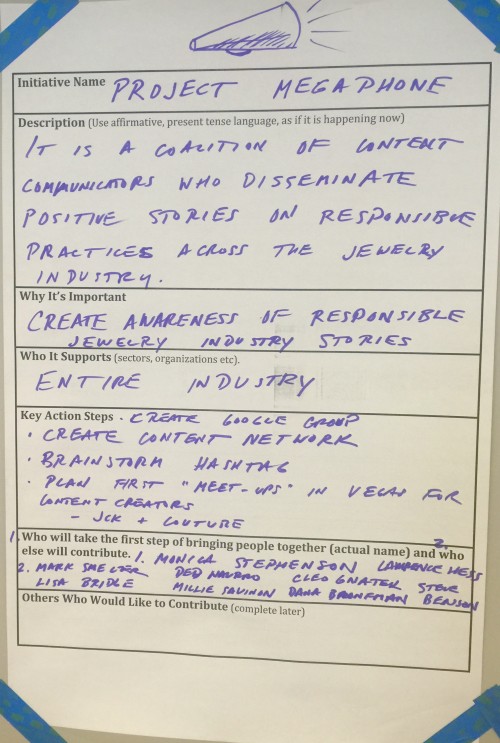 Initiative Name PROJECT MEGAPHONE
Description (Use affirmative, present tense language, as if it is happening now)
IT IS A COALITION OF CONTENT
COMMUNICATORS WHO DISSEMINATE
POSITIVE STORIES ON RESPONSIBLE
PRACTICES ACROSS THE JEWELRY
INDUSTRY.
Why It's Important
CREATE AWARENESS OF RESPONSIBLE
JEWELRY INDUSTRY STORIES
Who It Supports (sectors, organizations etc).
ENTIRE INDUSTRY
Key Action Steps · CREATE GOOGLE GROUP
· CREATE CONTENT NETWORK
· BRAINSTORM HASHTAG
· PLAN FIRST "MEET-UPS" IN VEGAS FOR
CONTENT CREATORS
- JCK + COUTURE
1. Who will take the first step of bringing people together (actual name) and 2. who
else will contribute. 1. MONICA STEPHENSON LAWRENCE HESS
2. MARK SMELTER NAVARRO CLEO GNATEK STEVE
LISA BRIDGE MILLIE SAVINON DANA BRONFMAN BENSON
Others Who Would Like to Contribute (complete later)